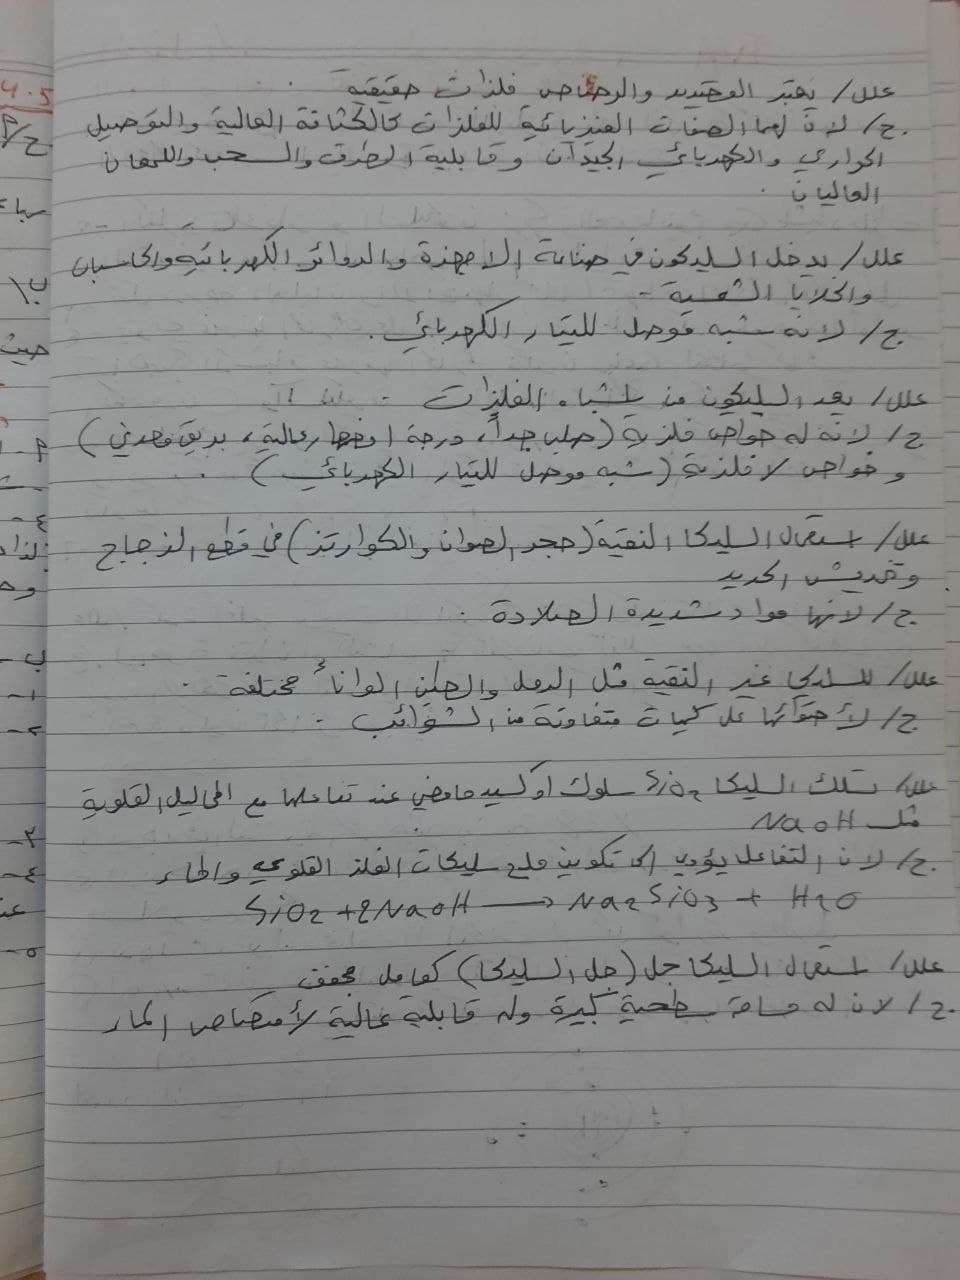 علل/ يعتبر القصدير والرصاص فلزات حقيقية.
ج/ لان لهما الصفات الفيزيائية للفلزات كالكثافة العالية والتوصيل
الحراري والكهربائي الجيدان وقابلية الطرق والسحب واللمعان
العاليان.
علل/ يدخل السليكون في صناعة الاجهزة والدوائر الكهربائية والحاسبات
والخلايا الشمسية.
ج/ لانه شبه موصل للتيار الكهربائي.
علل/ يعد السليكون من اشباه الفلزات.
ج/ لانه له خواص فلزية (صلب جداً، درجة انصهار عالية، بريق معدني)
وخواص لا فلزية (شبه موصل للتيار الكهربائي).
علل/ استعمال السليكا النقية (حجر الصوان والكوارتز) في قطع الزجاج
وتخديش الحديد
ج/ لانها مواد شديدة الصلادة.
علل/ للسليكا غير النقية مثل الرمل والطين الواناً مختلفة.
ج/ لأحتوائها على كميات متفاوتة من الشوائب.
علل/ تسلك السليكا SiO2 سلوك اوكسيد حامضي عند تفاعلها مع المحاليل القلوية
مثل NaOH
ج/ لان التفاعل يؤدي الى تكوين ملح سليكات الفلز القلوي والماء
SiO2 + 2NaOH ⟶ Na2SiO3 + H2O
علل/ استعمال السليكا جل (جل السليكا) كعامل مجفف
ج/ لان له مساحة سطحية كبيرة وله قابلية عالية لأمتصاص الماء